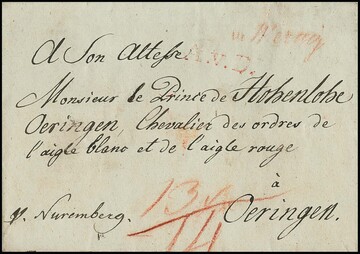 A Son Altesse
A.V.D.
Monsieur le Prince de Hohenlohe
Oeringen, Chevalier des ordres de
l'aigle blanc et de l'aigle rouge
à
p. Nuremberg.
Oeringen.
14